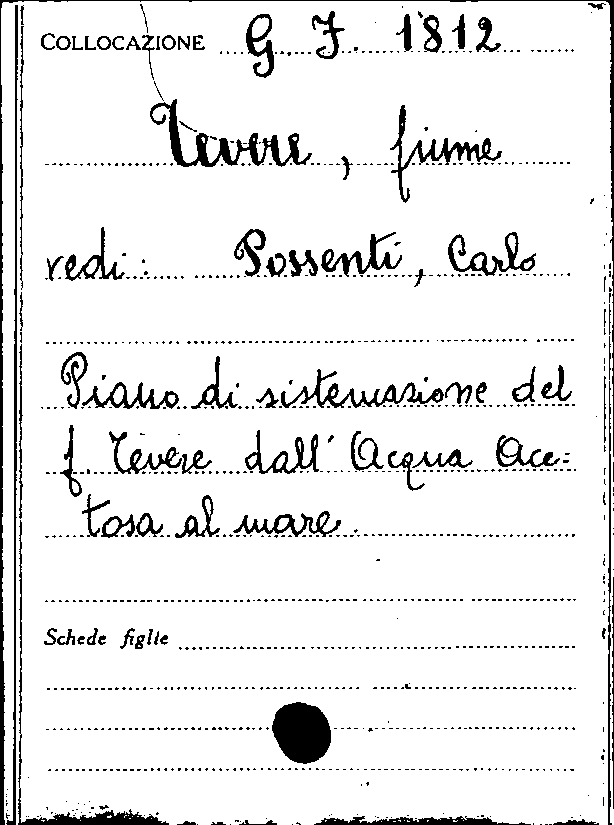 COLLOCAZIONE G. F. 1812
Tevere, fiume
vedi: Possenti, Carlo
Piano di sistemazione del
f. Tevere dall'Acqua Ace=
tosa al mare.
Schede figlie